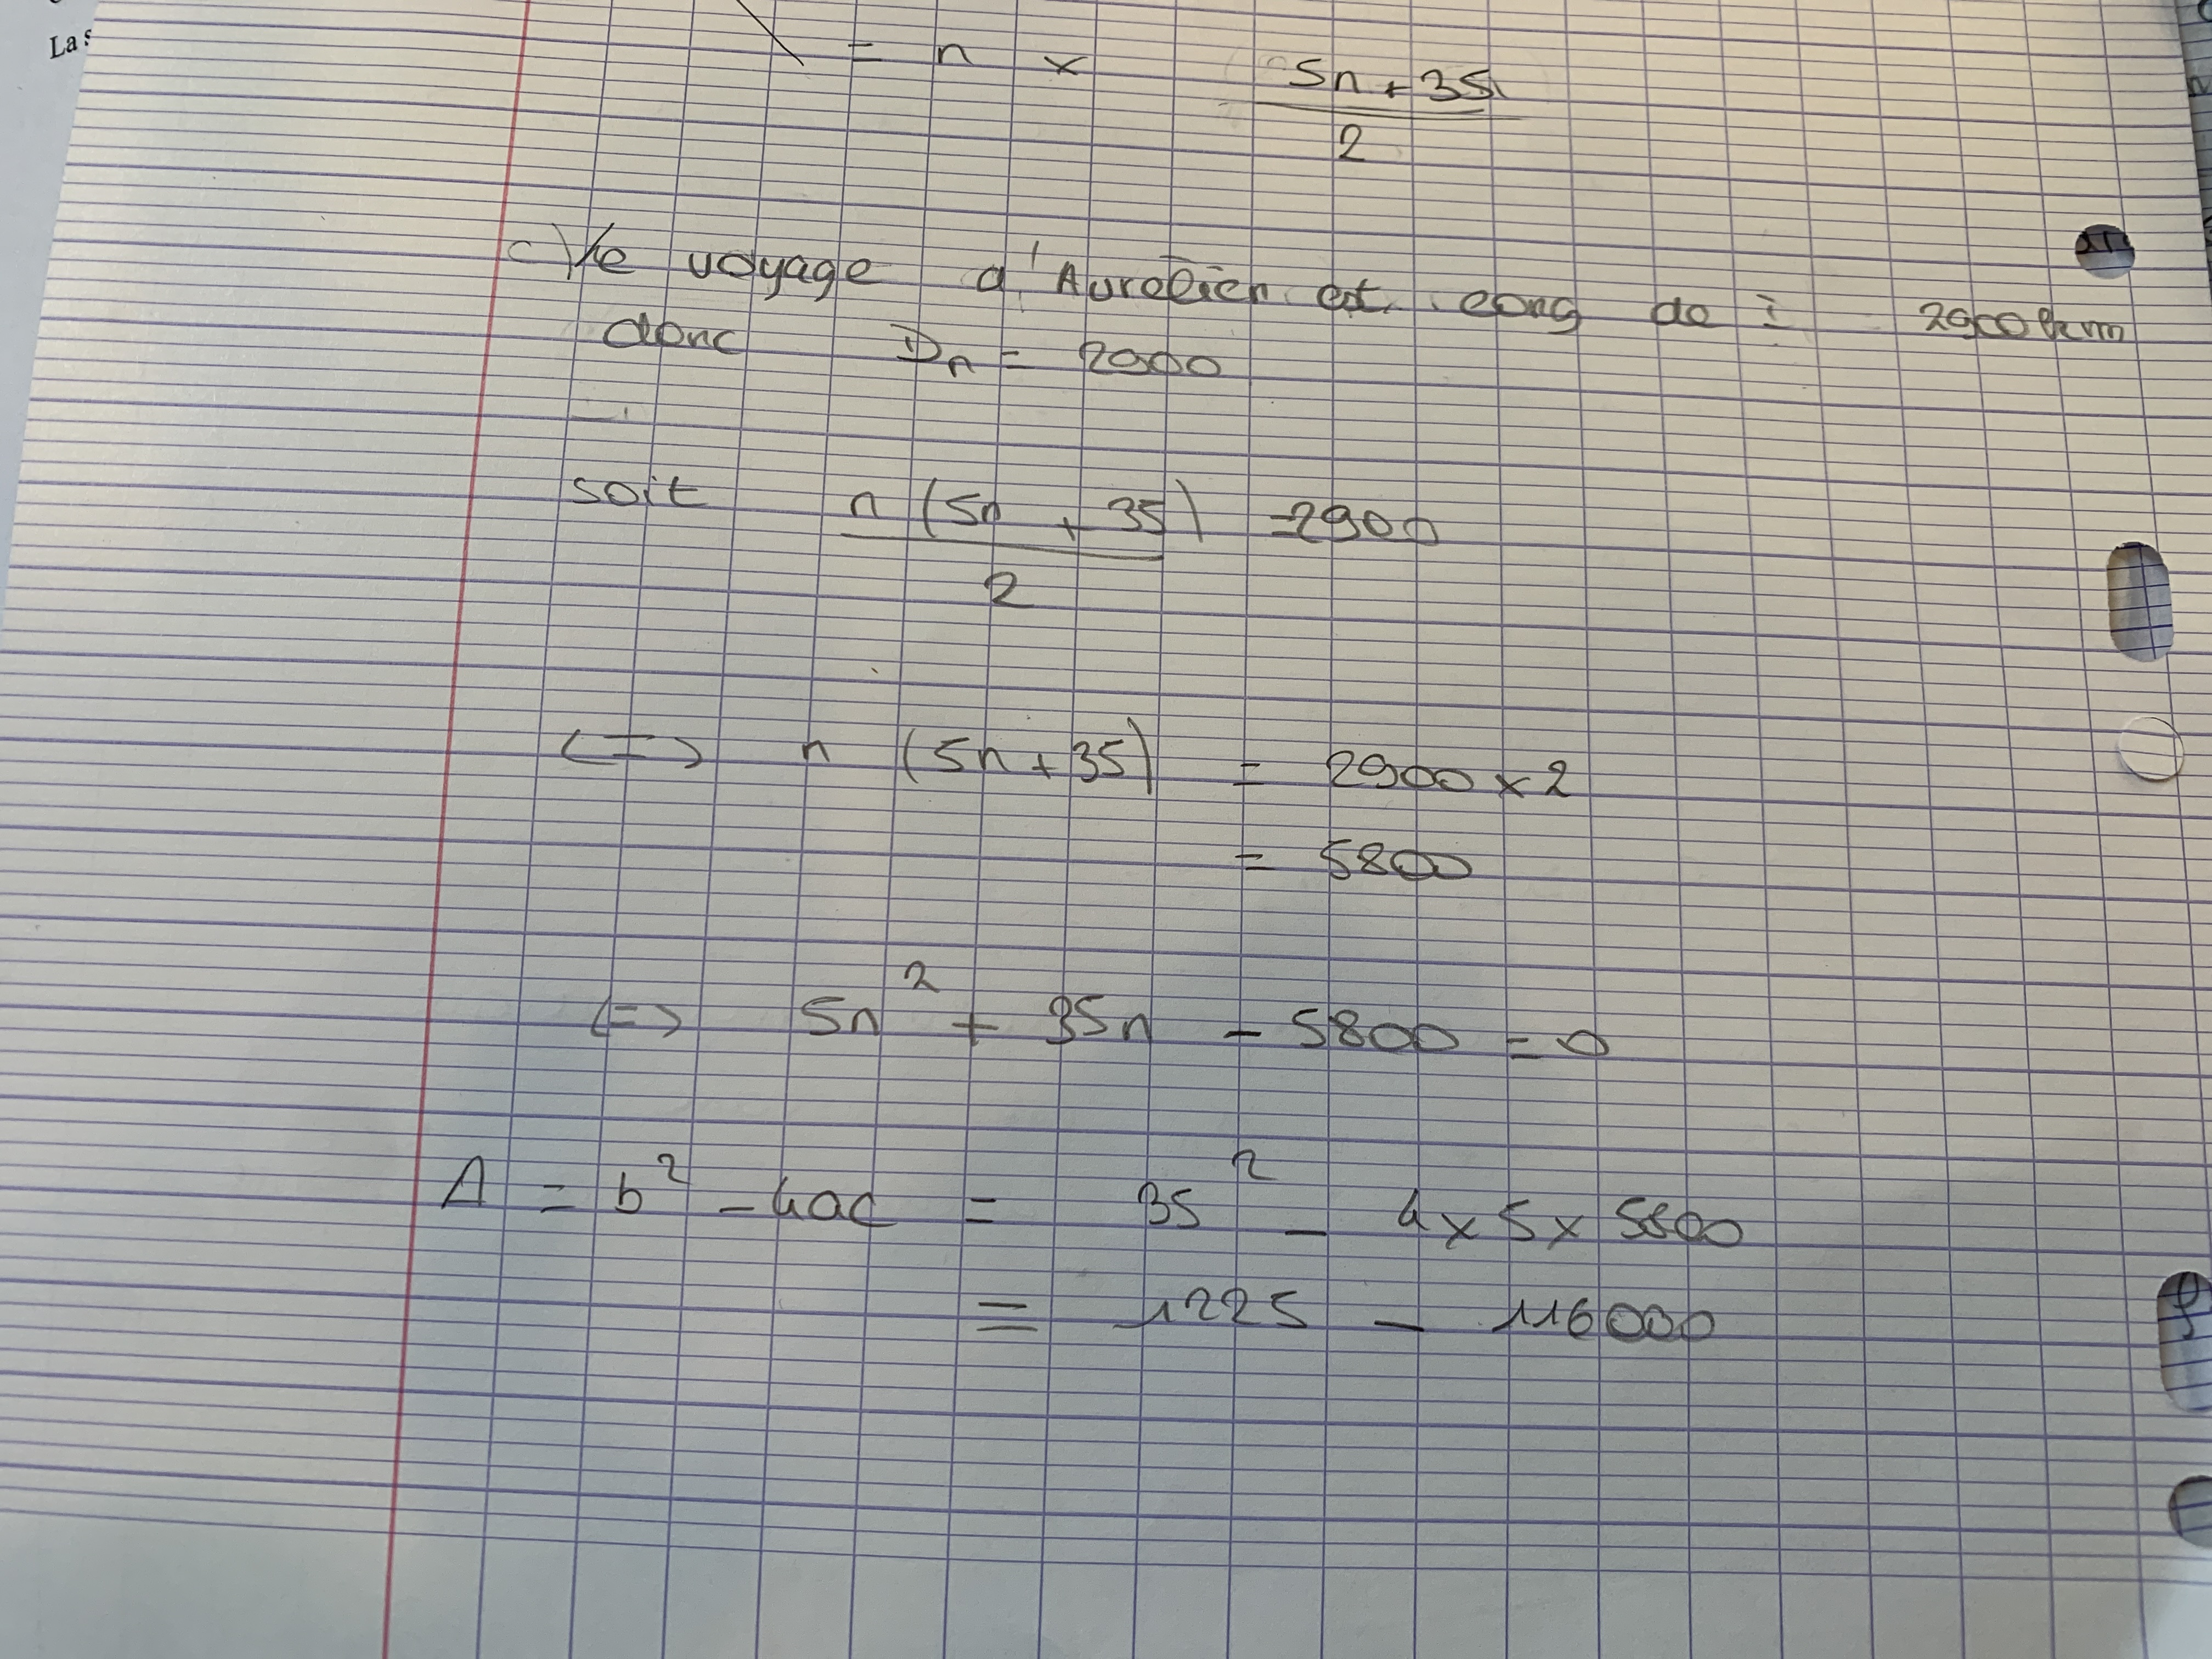 La s
= n × (5n + 35)/2
c) Le voyage d'Aurélien est long de : 2900 km
donc Dn = 2900
soit n (5n + 35)/2 = 2900
<=> n (5n + 35) = 2900 × 2
= 5800
<=> 5n² + 35n - 5800 = 0
Δ = b² - 4ac = 35² - 4 × 5 × 5800
= 1225 - 116000